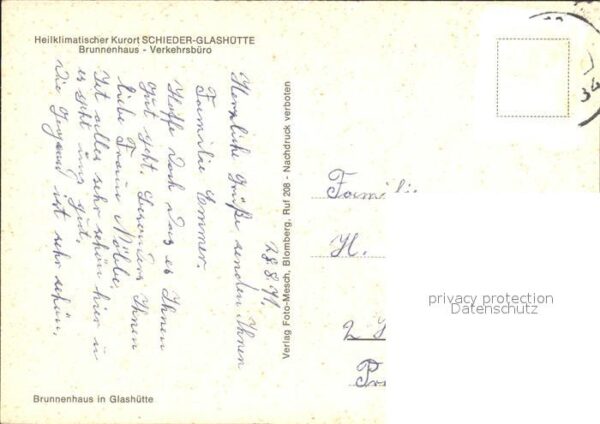 Heilklimatischer Kurort SCHIEDER-GLASHÜTTE
Brunnenhaus - Verkehrsbüro
28.8.71.
Herzliche Grüße senden Ihnen
Familie Emmer.
Hoffe doch das es Ihnen
gut geht. Besonders Ihnen
liebe Frau
Ist alles sehr schön hier u
es geht uns gut.
Die Gegend ist sehr schön.
Verlag Foto-Mesch, Blomberg, Ruf 208 - Nachdruck verboten
Famili
H.
2
34
privacy protection
Datenschutz
Brunnenhaus in Glashütte